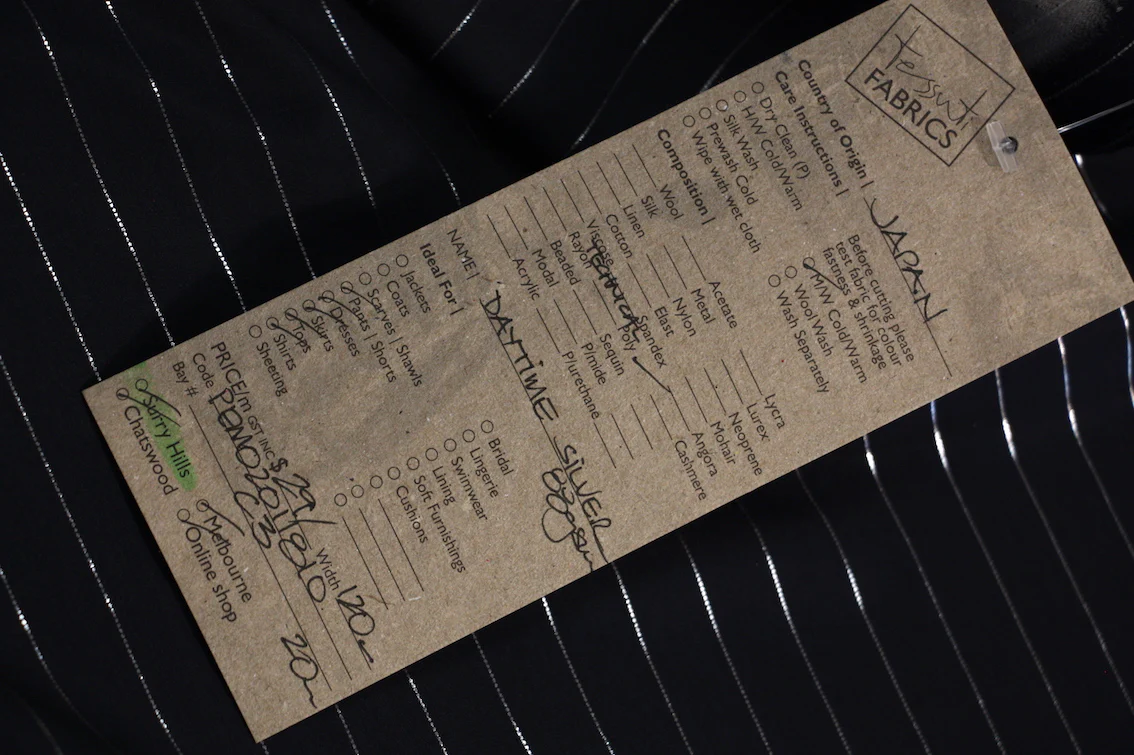 tessuti
FABRICS
Country of Origin | JAPAN
Care Instructions |
Dry Clean (P)
H/W Cold/Warm
Silk Wash
Prewash Cold
Wipe with wet cloth
Before cutting please
test fabric for colour
fastness & shrinkage
M/W Cold/Warm
Wool Wash
Wash Separately
Composition |
Wool
Silk
Linen
Cotton
Viscose
Rayon
Beaded
Modal
Acrylic
TECHNICAL
Acetate
Metal
Nylon
Elast
Spandex
Poly
Sequin
Pimide
Purethane
Lycra
Lurex
Neoprene
Mohair
Angora
Cashmere
NAME | DAYTIME SILVER
Ideal For |
Jackets
Coats
Scarves | Shawls
Pants | Shorts
Dresses
Skirts
Tops
Shirts
Sheeting
Bridal
Lingerie
Swimwear
Lining
Soft Furnishings
Cushions
PRICE/m GST INC $ 29/ Width 120
Code
Bay # C3 20m
Surry Hills
Chatswood
Melbourne
Online shop